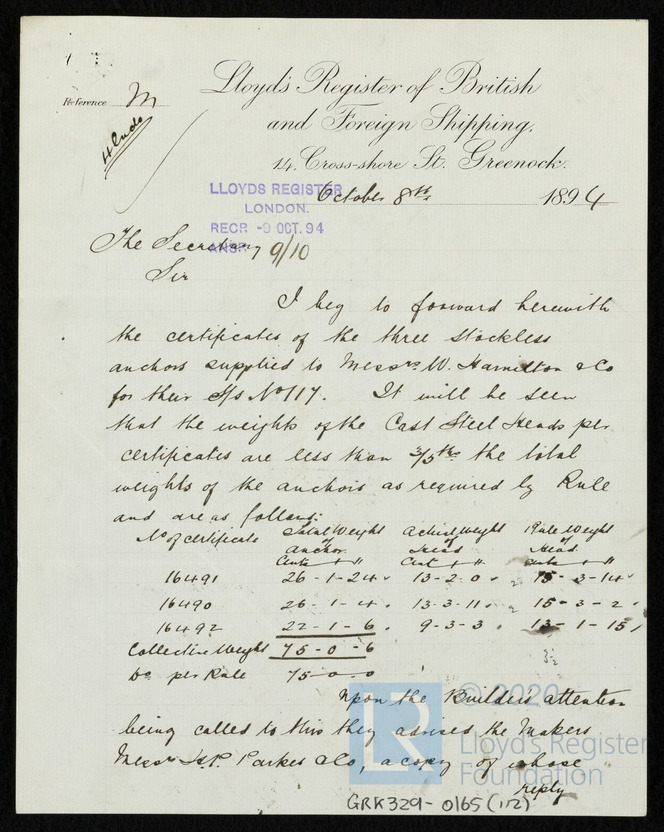 Reference M
Lloyd's Register of British
and Foreign Shipping.
14. Cross-shore St. Greenock.
LLOYDS REGISTER
LONDON.
October 8th 1894
RECR -9 OCT. 94
The Secretary 9/10
Sir
I beg to forward herewith
the certificates of the three stockless
anchors supplied to Messrs W. Hamilton & Co
for their S/s No 117. It will be seen
that the weights of the Cast Steel Heads per
certificates are less than 3/5ths the total
weights of the anchors as required by Rule
and are as follows:
No of certificate Total Weight of Anchor Actual Weight of Head Rule Weight of Head
16491 26-1-24 13-2-0 15-3-14
16490 26-1-4 13-3-11 15-3-2
16492 22-1-6 9-3-3 13-1-15
Collective Weight 75-0-6
Do per Rule 75-0-0
Upon the Builders attention
being called to this they advised the Makers
Messrs H.P. Parkes & Co, a copy of whose
reply
© 2020
LR
Lloyd's Register
Foundation
GRK329-0165(1/2)